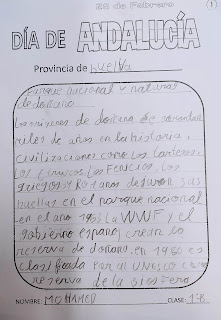 28 de Febrero
1
DÍA DE ANDALUCÍA
Provincia de HUELVA
Parque nacional y natural
de doñana
Los origenes de doñana se remontan
miles de años en la historia,
civilizaciones como los tartesos,
los, los Fenicios, los
griegos y Romanos dejaron sus
huellas en el parque nacional
en el año 1963 la WWF y el
gobierno español crean la
reserva de doñana, en 1980 es
clasificada por al unesco como
reserva de la biosfera
NOMBRE: MOHAMED CLASE: